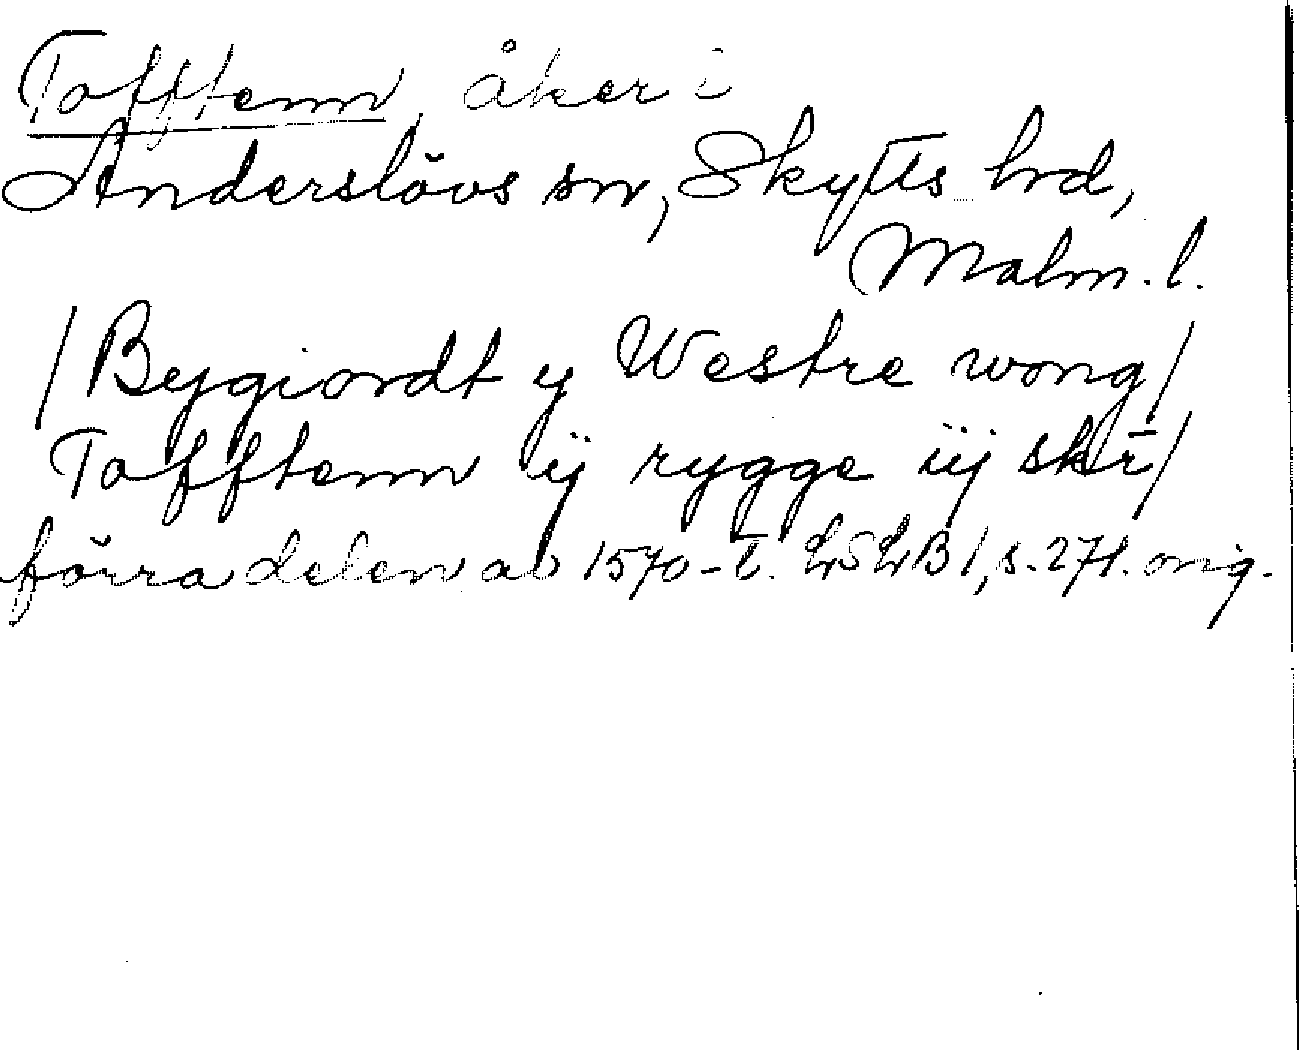 Tofftenn, åker i
Anderslövs sn, Skytts hd,
Malm. l.
/Bygiordt y Westre wong/
Tofftenn ij rygge iij skr̄/
förra delen av 1570-t. LSLB 1, s. 271. orig.